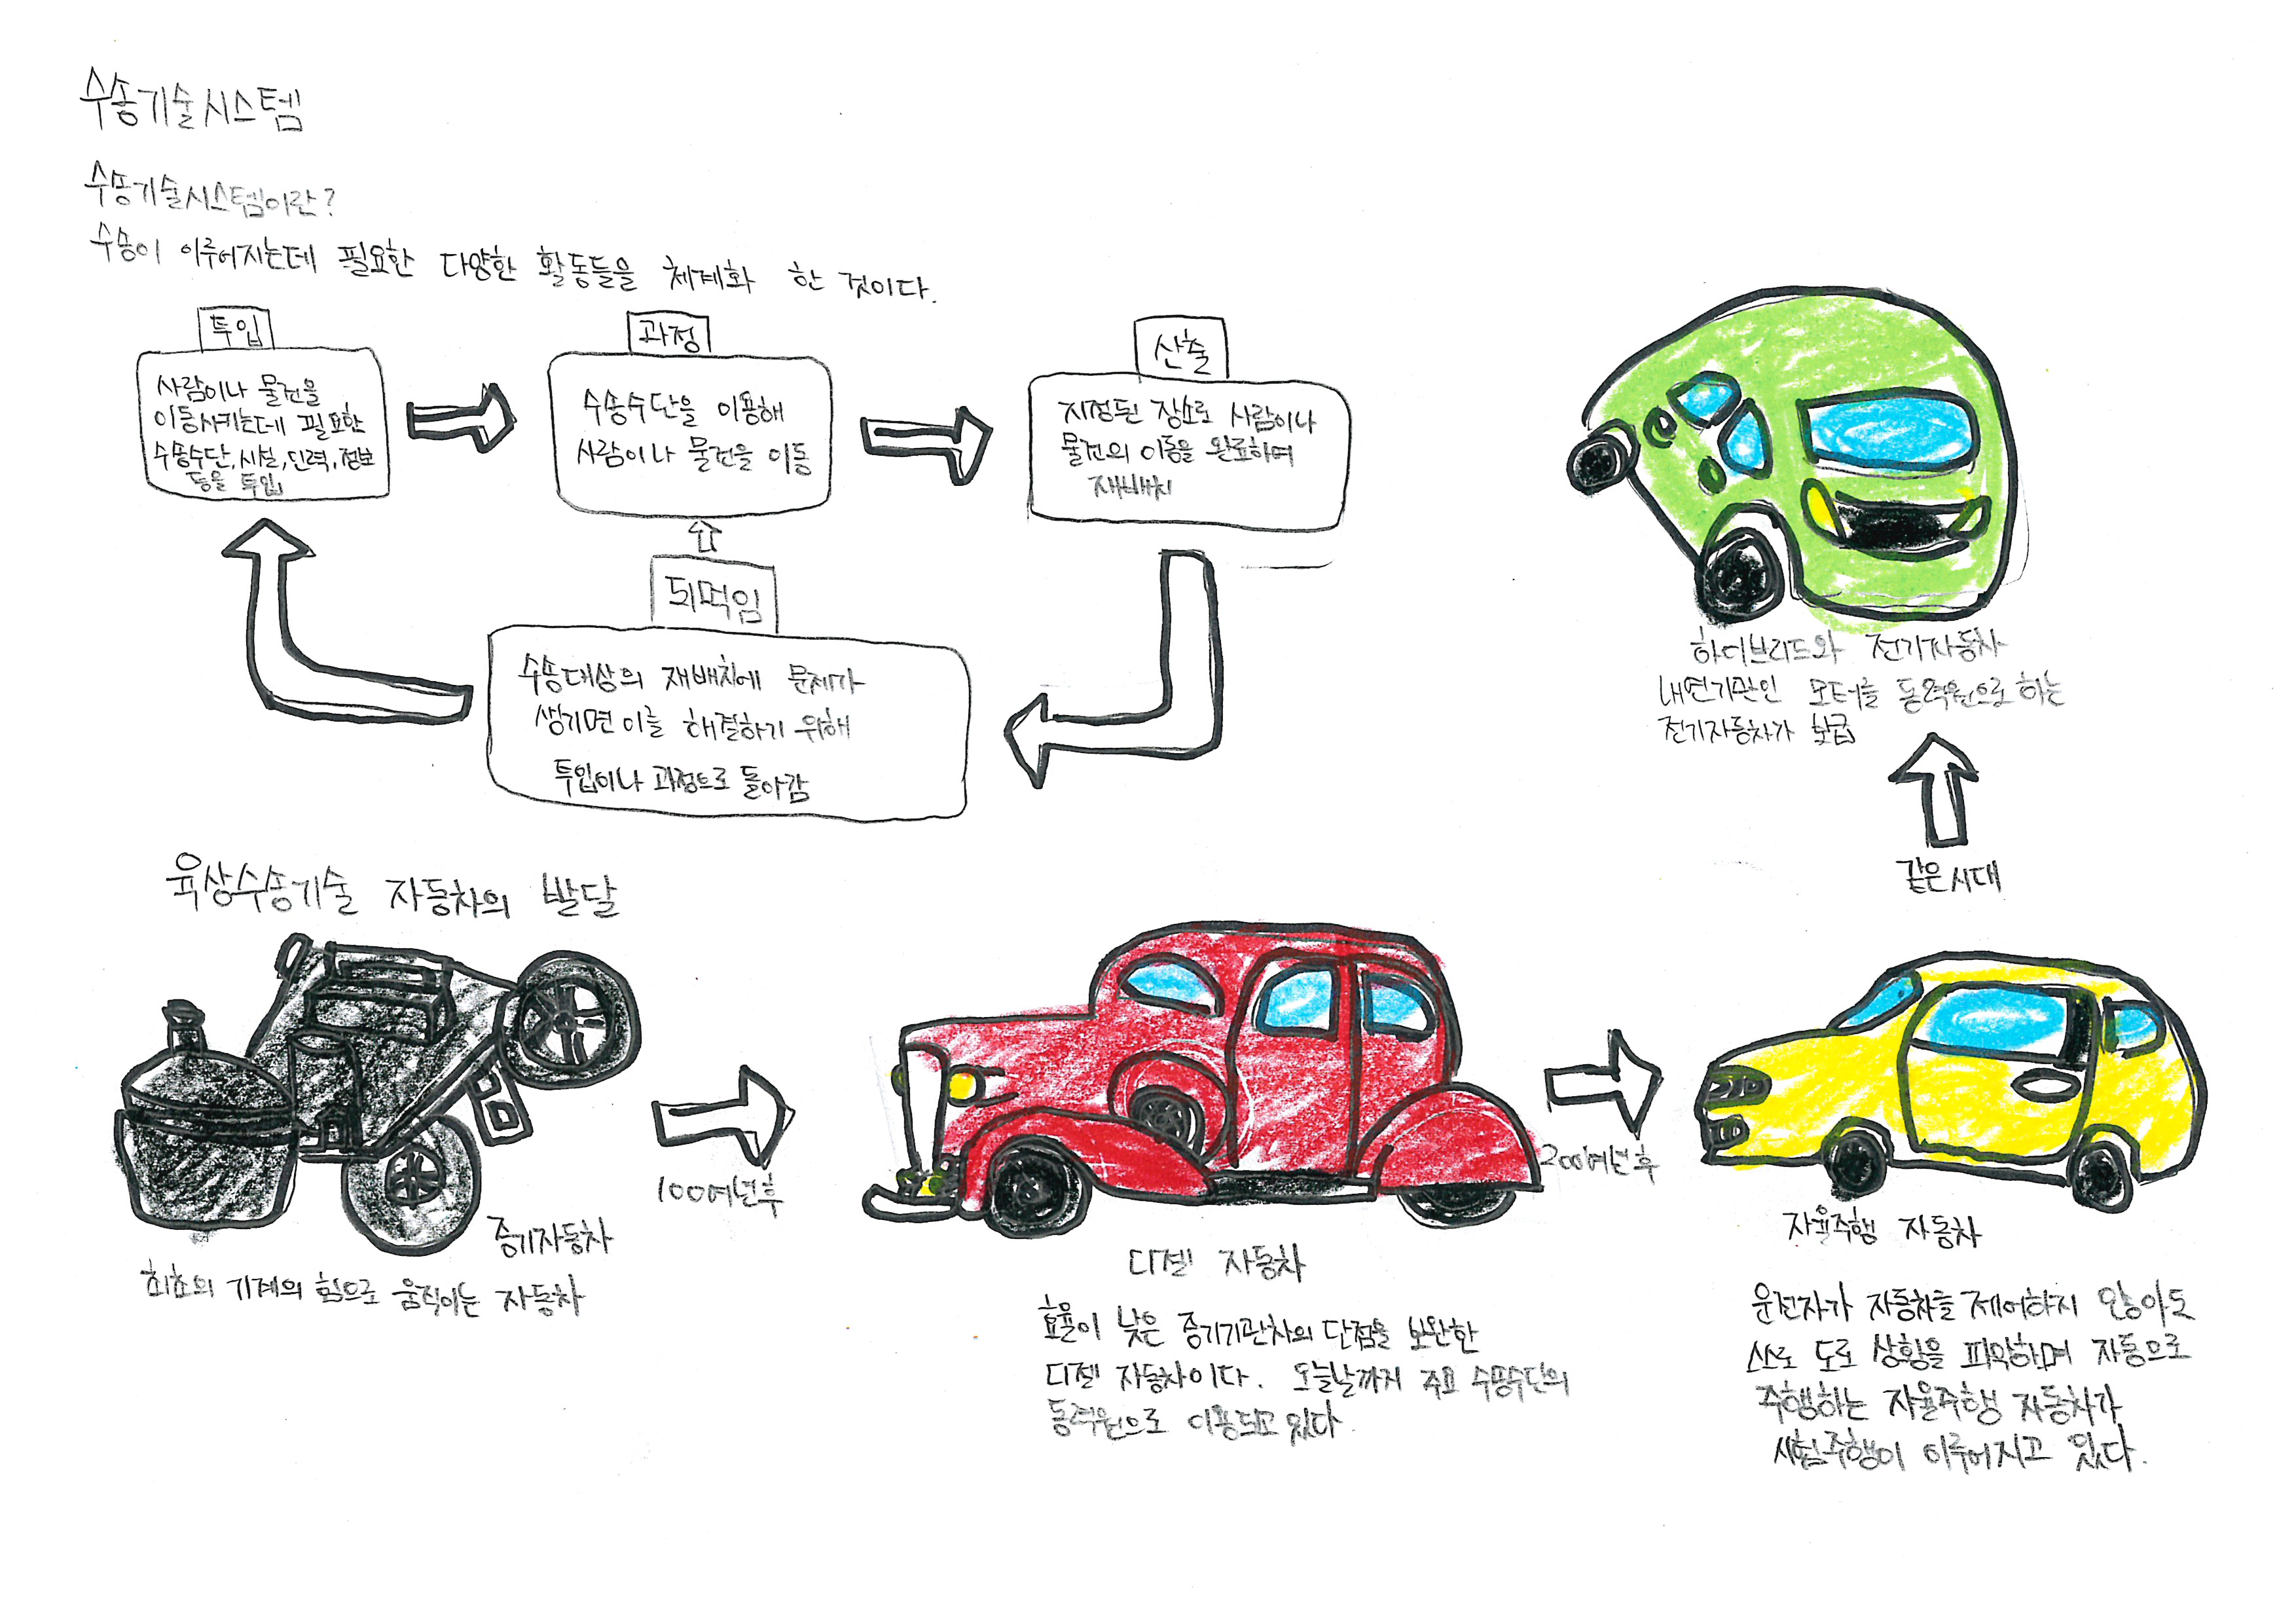 수송기술시스템
수송기술시스템이란?
수송이 이루어지는데 필요한 다양한 활동들을 체계화 한 것이다.
투입
사람이나 물건을
이동시키는데 필요한
수송수단,시설,인력,정보
등을 투입
과정
수송수단을 이용해
사람이나 물건을 이동
산출
지정된 장소로 사람이나
물건의 이동을 완료하며
재배치
되먹임
수송대상의 재배치에 문제가
생기면 이를 해결하기 위해
투입이나 과정으로 돌아감
하이브리드와 전기자동차
내연기관인 모터를 동력원으로 하는
전기자동차가 보급
같은시대
육상수송기술 자동차의 발달
증기자동차
최초의 기계의 힘으로 움직이는 자동차
100여년후
디젤 자동차
효율이 낮은 증기기관차의 단점을 보완한
디젤 자동차이다. 오늘날까지 주요 수송수단의
동력원으로 이용되고 있다
200여년후
자율주행 자동차
운전자가 자동차를 제어하지 않아도
스스로 도로 상황을 파악하며 자동으로
주행하는 자율주행 자동차가
시험주행이 이루어지고 있다.